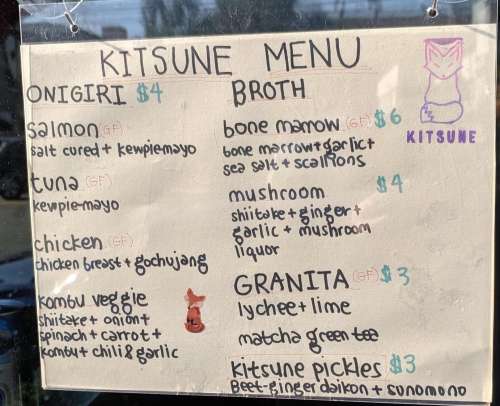 KITSUNE MENU
ONIGIRI $4
salmon (GF)
salt cured + kewpie mayo
tuna (GF)
kewpie-mayo
chicken (GF)
chicken breast + gochujang
kombu veggie
shiitake + onion +
spinach + carrot +
kombu + chili & garlic
BROTH
bone marrow (GF) $6
bone marrow + garlic +
sea salt + scallions
mushroom $4
shiitake + ginger +
garlic + mushroom
liquor
GRANITA (GF) $3
lychee + lime
matcha green tee
kitsune pickles $3
Beet-ginger daikon + sunomono
KITSUNE